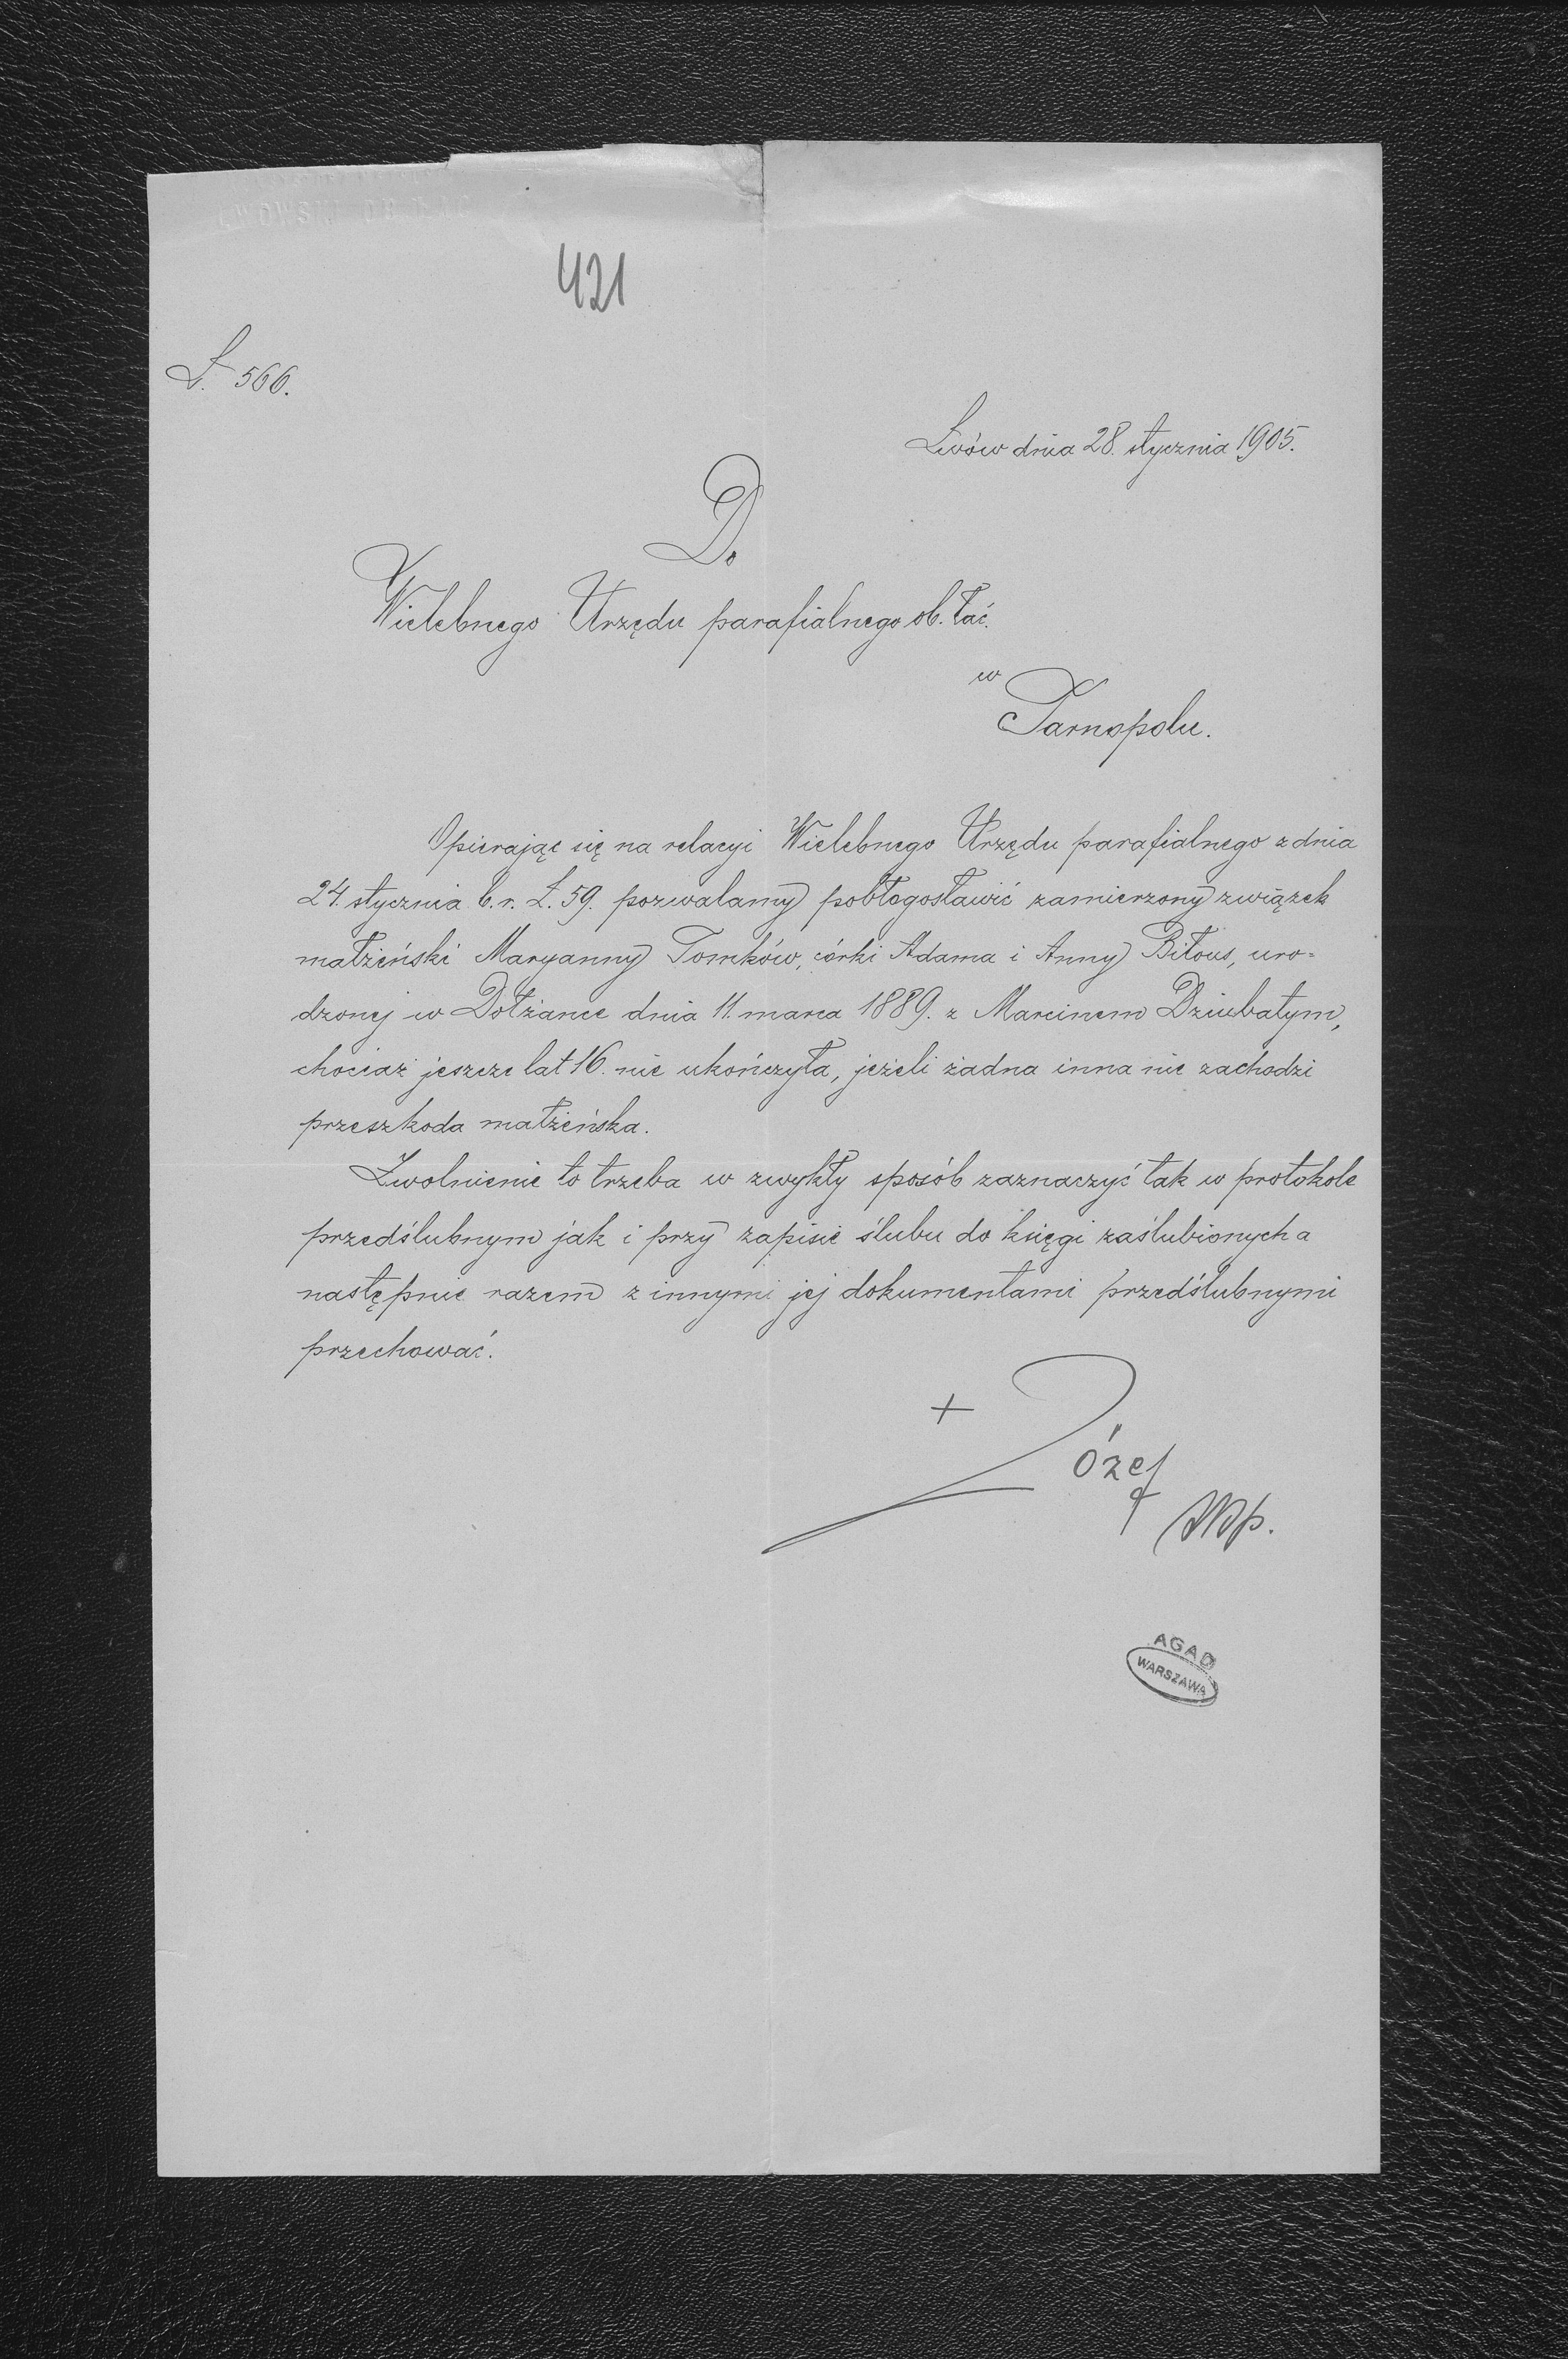 421
L. 566.
Lwów dnia 28. stycznia 1905.
Do
Wielebnego Urzędu parafialnego ob. łać.
w
Tarnopolu.
Opierając się na relacyi Wielebnego Urzędu parafialnego z dnia
24. stycznia b. r. L. 59. pozwalamy pobłogosławić zamierzony związek
małżeński Maryanny Tomków, córki Adama i Anny Biłous, uro=
dzonej w Dołżance dnia 11. marca 1889. z Marcinem Dziubatym,
chociaż jeszcze lat 16. nie ukończyła, jeżeli żadna inna nie zachodzi
przeszkoda małżeńska.
Zwolnienie to trzeba w zwykły sposób zaznaczyć tak w protokole
przedślubnym jak i przy zapisie ślubu do księgi zaślubionych a
następnie razem z innymi jej dokumentami przedślubnymi
przechować.
+ Józef
Abp.
AGAD
WARSZAWA